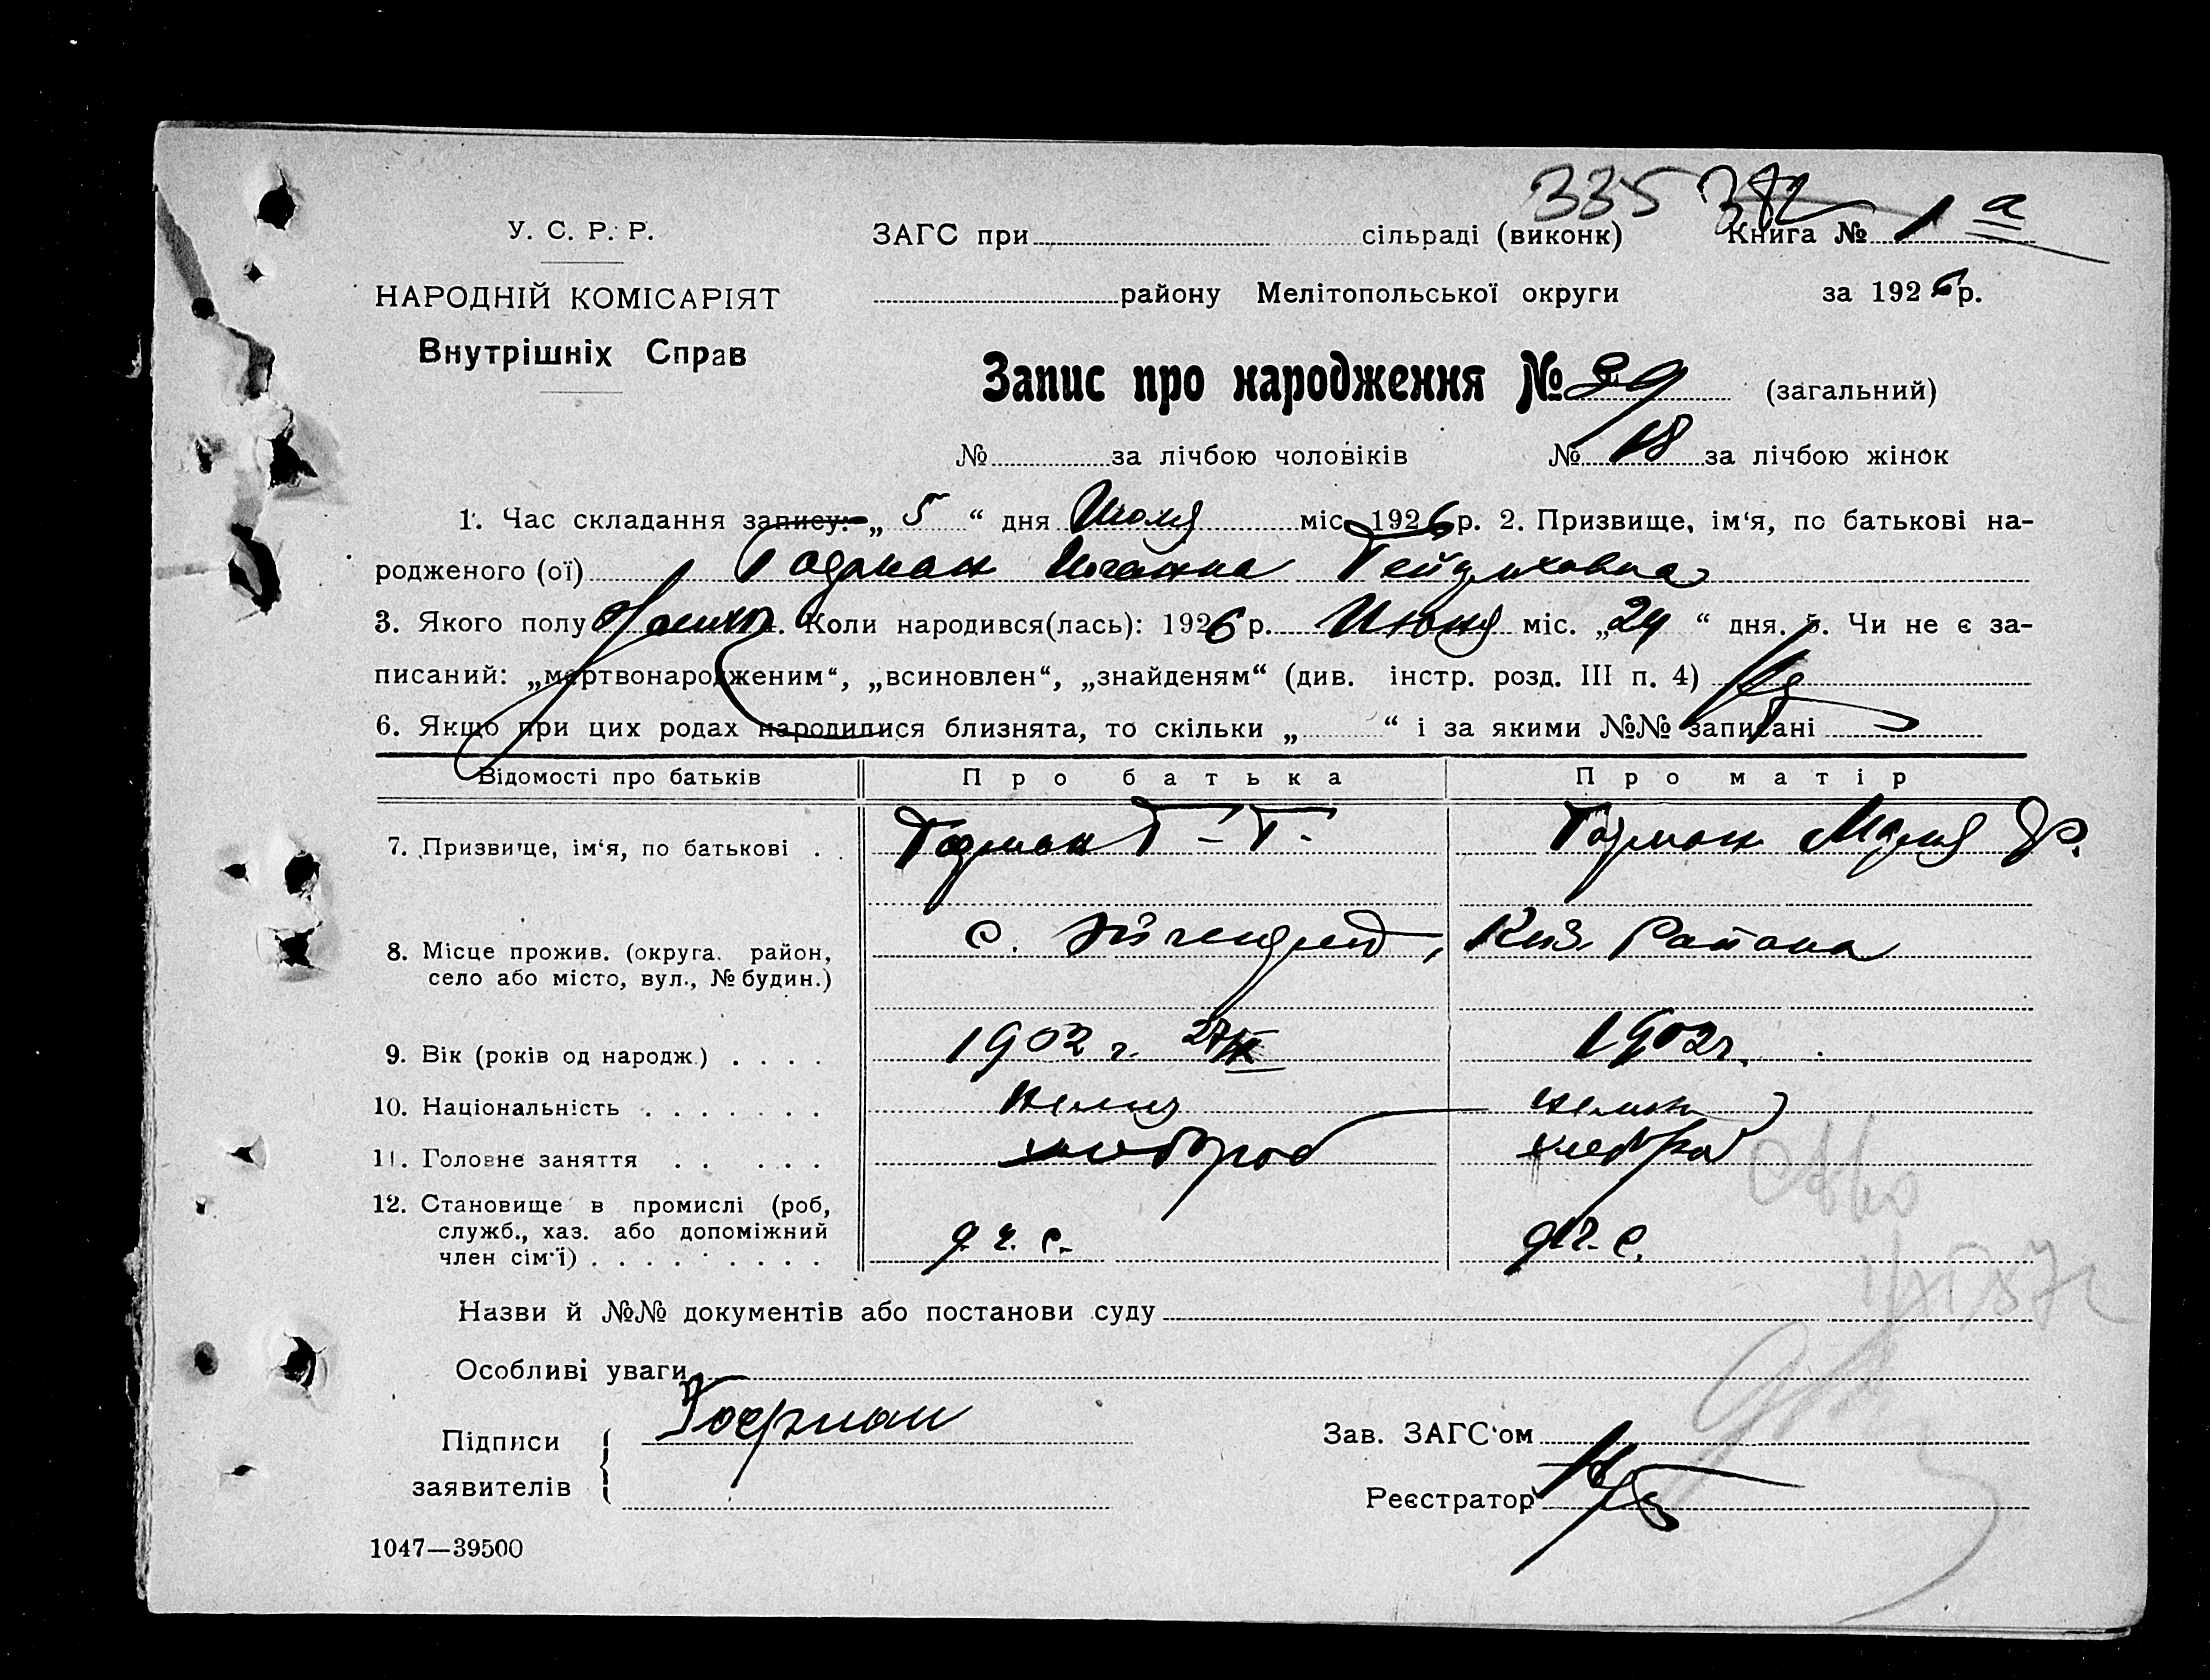 335 382
У. С. Р. Р. ЗАГС при сільраді (виконк) Книга № 1 а
НАРОДНІЙ КОМІСАРІЯТ району Мелітопольської округи за 1926 р.
Внутрішніх Справ
Запис про народження № 39 (загальний)
№ за лічбою чоловіків № 18 за лічбою жінок
1. Час складання запису: „ 5 “ дня Июля міс. 1926 р. 2. Призвище, ім‘я, по батькові на-
родженого (ої)
3. Якого полу Коли народився(лась): 1926 р. Июня міс. „24 “ дня. 5. Чи не є за-
писаний: „мертвонародженим“, „всиновлен“, „знайденям“ (див. інстр. розд. III п. 4)
6. Якщо при цих родах народилися близнята, то скільки „ “ і за якими №№ записані
Відомості про батьків Про батька Про матір
7. Призвище, ім‘я, по батькові . . Г. Г. Мария
8. Місце прожив. (округа. район, с. района
село або місто, вул., № будин.)
9. Вік (років од народж.) . . . . 1902 г. 1902 г.
10. Національність . . . . . . . немец немка
11. Головне заняття . . . . . хлебороб хлебороб
12. Становище в промислі (роб,
служб., хаз. або допоміжний
член сім‘ї) . . . . . . . . д. ч. с. д. ч. с.
Назви й №№ документів або постанови суду
Особливі уваги
Підписи Зав. ЗАГС‘ом
заявителів Реєстратор
1047—39500